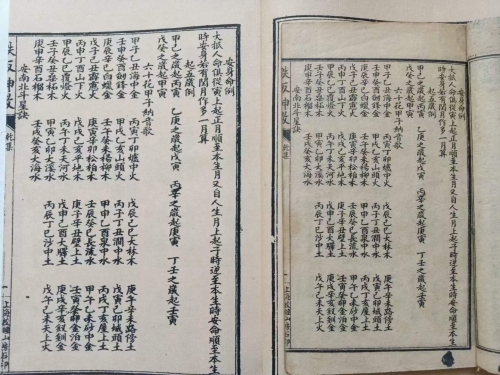 安身命例
大抵人命俱從寅上起正月順至本生月又自人生月上起子時逆至本生時安命順至本生
時安身始有閏月作多一月算
起五歲例
甲己之歲起丙寅 乙庚之歲起戊寅 丙辛之歲起庚寅 丁壬之歲起壬寅
戊癸之歲起甲寅
六十花甲子納音歌
甲子乙丑海中金 丙寅丁卯爐中火 戊辰己巳大林木 庚午辛未路傍土
壬申癸酉劍鋒金 甲戌乙亥山頭火 丙子丁丑澗中水 戊寅己卯城頭土
庚辰辛巳白蠟金 壬午癸未楊柳木 甲申乙酉泉中水 丙戌丁亥屋上土
戊子己丑霹靂火 庚寅辛卯松柏木 壬辰癸巳長流水 甲午乙未砂中金
丙申丁酉山下火 戊戌己亥平地木 庚子辛丑壁上土 壬寅癸卯金泊金
甲辰乙巳覆燈火 丙午丁未天河水 戊申己酉大驛土 庚戌辛亥釵釧金
壬子癸丑桑柘木 甲寅乙卯大溪水 丙辰丁巳沙中土 戊午己未天上火
庚申辛酉石榴木 壬戌癸亥大海水
安南北斗星訣
鉄板神数 乾集 一 上海校經山房石印
安身命例
大抵人命俱從寅上起正月順至本生月又自人生月上起子時逆至本生時安命順至本生
時安身始有閏月作多一月算
起五歲例
甲己之歲起丙寅 乙庚之歲起戊寅 丙辛之歲起庚寅 丁壬之歲起壬寅
戊癸之歲起甲寅
六十花甲子納音歌
甲子乙丑海中金 丙寅丁卯爐中火 戊辰己巳大林木 庚午辛未路傍土
壬申癸酉劍鋒金 甲戌乙亥山頭火 丙子丁丑澗中水 戊寅己卯城頭土
庚辰辛巳白蠟金 壬午癸未楊柳木 甲申乙酉泉中水 丙戌丁亥屋上土
戊子己丑霹靂火 庚寅辛卯松柏木 壬辰癸巳長流水 甲午乙未砂中金
丙申丁酉山下火 戊戌己亥平地木 庚子辛丑壁上土 壬寅癸卯金泊金
甲辰乙巳覆燈火 丙午丁未天河水 戊申己酉大驛土 庚戌辛亥釵釧金
壬子癸丑桑柘木 甲寅乙卯大溪水 丙辰丁巳沙中土 戊午己未天上火
庚申辛酉石榴木 壬戌癸亥大海水
安南北斗星訣
鉄板神数 乾集 一 上海校經山房石印